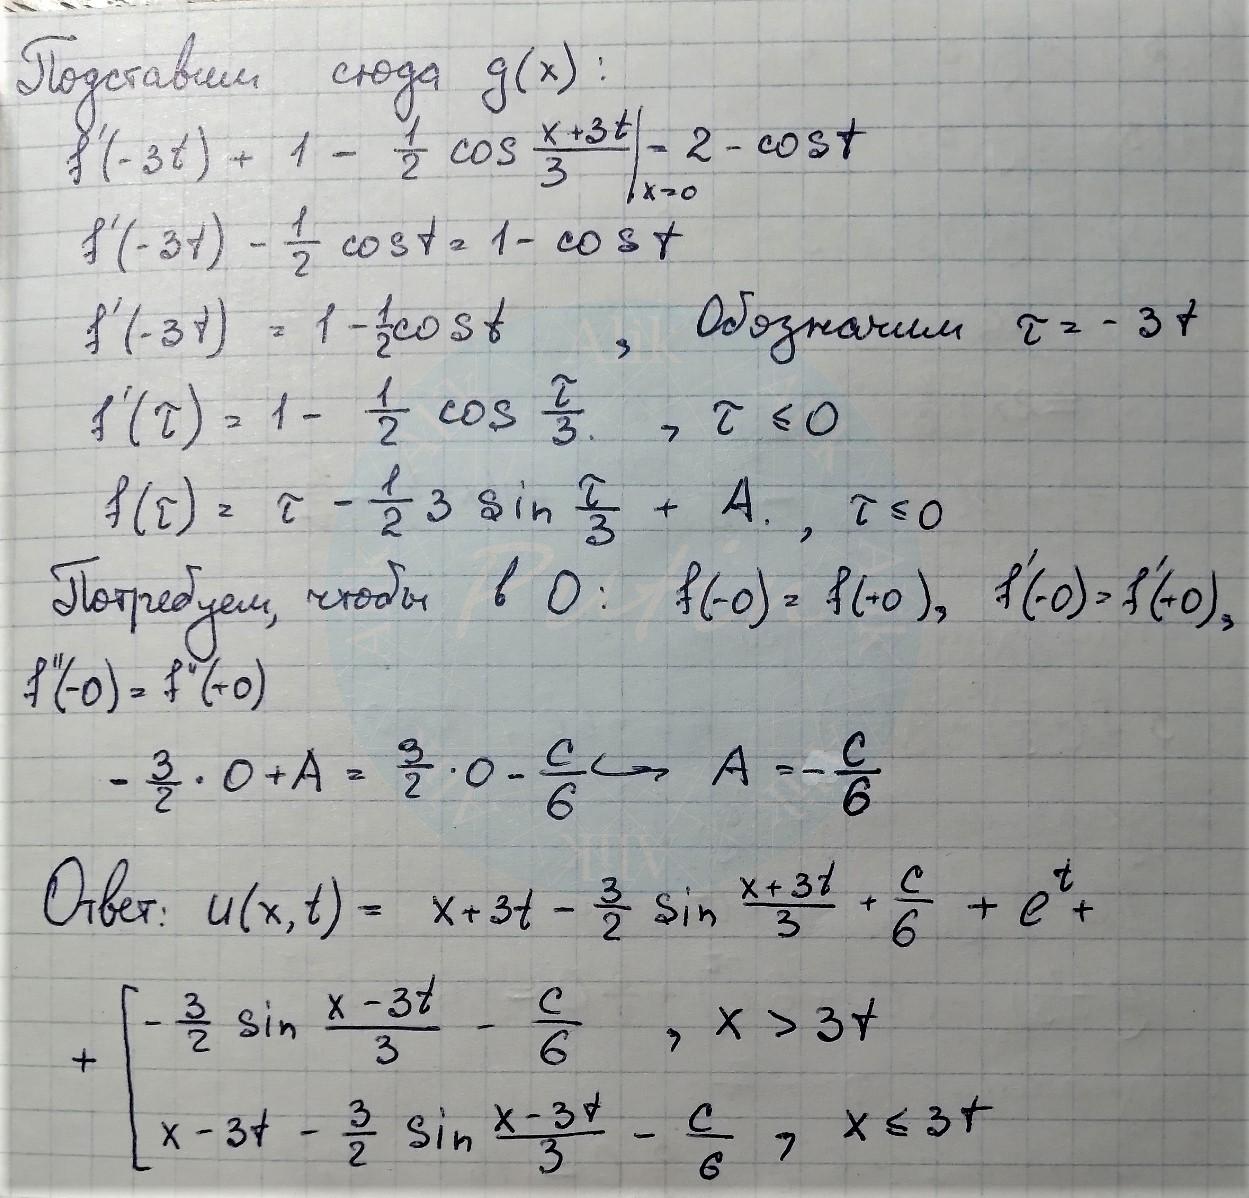 Подставим сюда g(x):
f'(-3t) + 1 - 1/2 cos (x+3t)/3 |x=0 = 2 - cos t
f'(-3t) - 1/2 cos t = 1 - cos t
f'(-3t) = 1 - 1/2 cos t , Обозначим τ = -3t
f'(τ) = 1 - 1/2 cos τ/3. , τ ≤ 0
f(τ) = τ - 1/2 3 sin τ/3 + A. , τ ≤ 0
Потребуем, чтобы в 0: f(-0) = f(+0), f'(-0) = f'(+0),
f''(-0) = f''(+0)
- 3/2 · 0 + A = 3/2 · 0 - C/6 ↪ A = - C/6
Ответ: u(x,t) = x+3t - 3/2 sin (x+3t)/3 + C/6 + e^t +
+ [ - 3/2 sin (x-3t)/3 - C/6 , x > 3t
x - 3t - 3/2 sin (x-3t)/3 - C/6 , x ≤ 3t